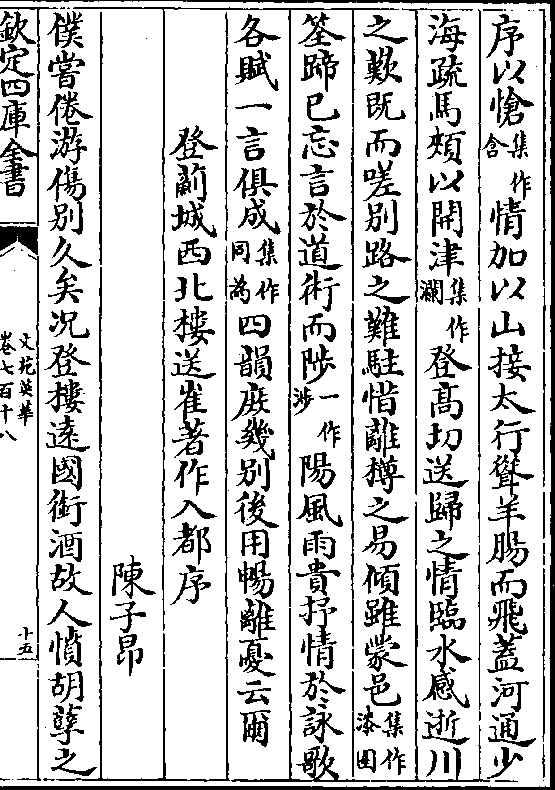 序以愴集作含情加以山接太行聳羊腸而飛蓋河通少
海疏馬頰以開津集作瀾登高切送歸之情臨水感逝川
之歎既而嗟別路之難駐惜離樽之易傾雖蒙邑集作漆園
筌蹄已忘言於道術而陟一作涉陽風雨貴抒情於詠歌
各賦一言俱成集作同為四韻庶幾別後用暢離憂云爾
登薊城西北樓送崔著作入都序
陳子昂
僕嘗倦游傷別久矣況登樓遠國銜酒故人憤胡孽之
欽定四庫全書
文苑英華
卷七百十八
十五